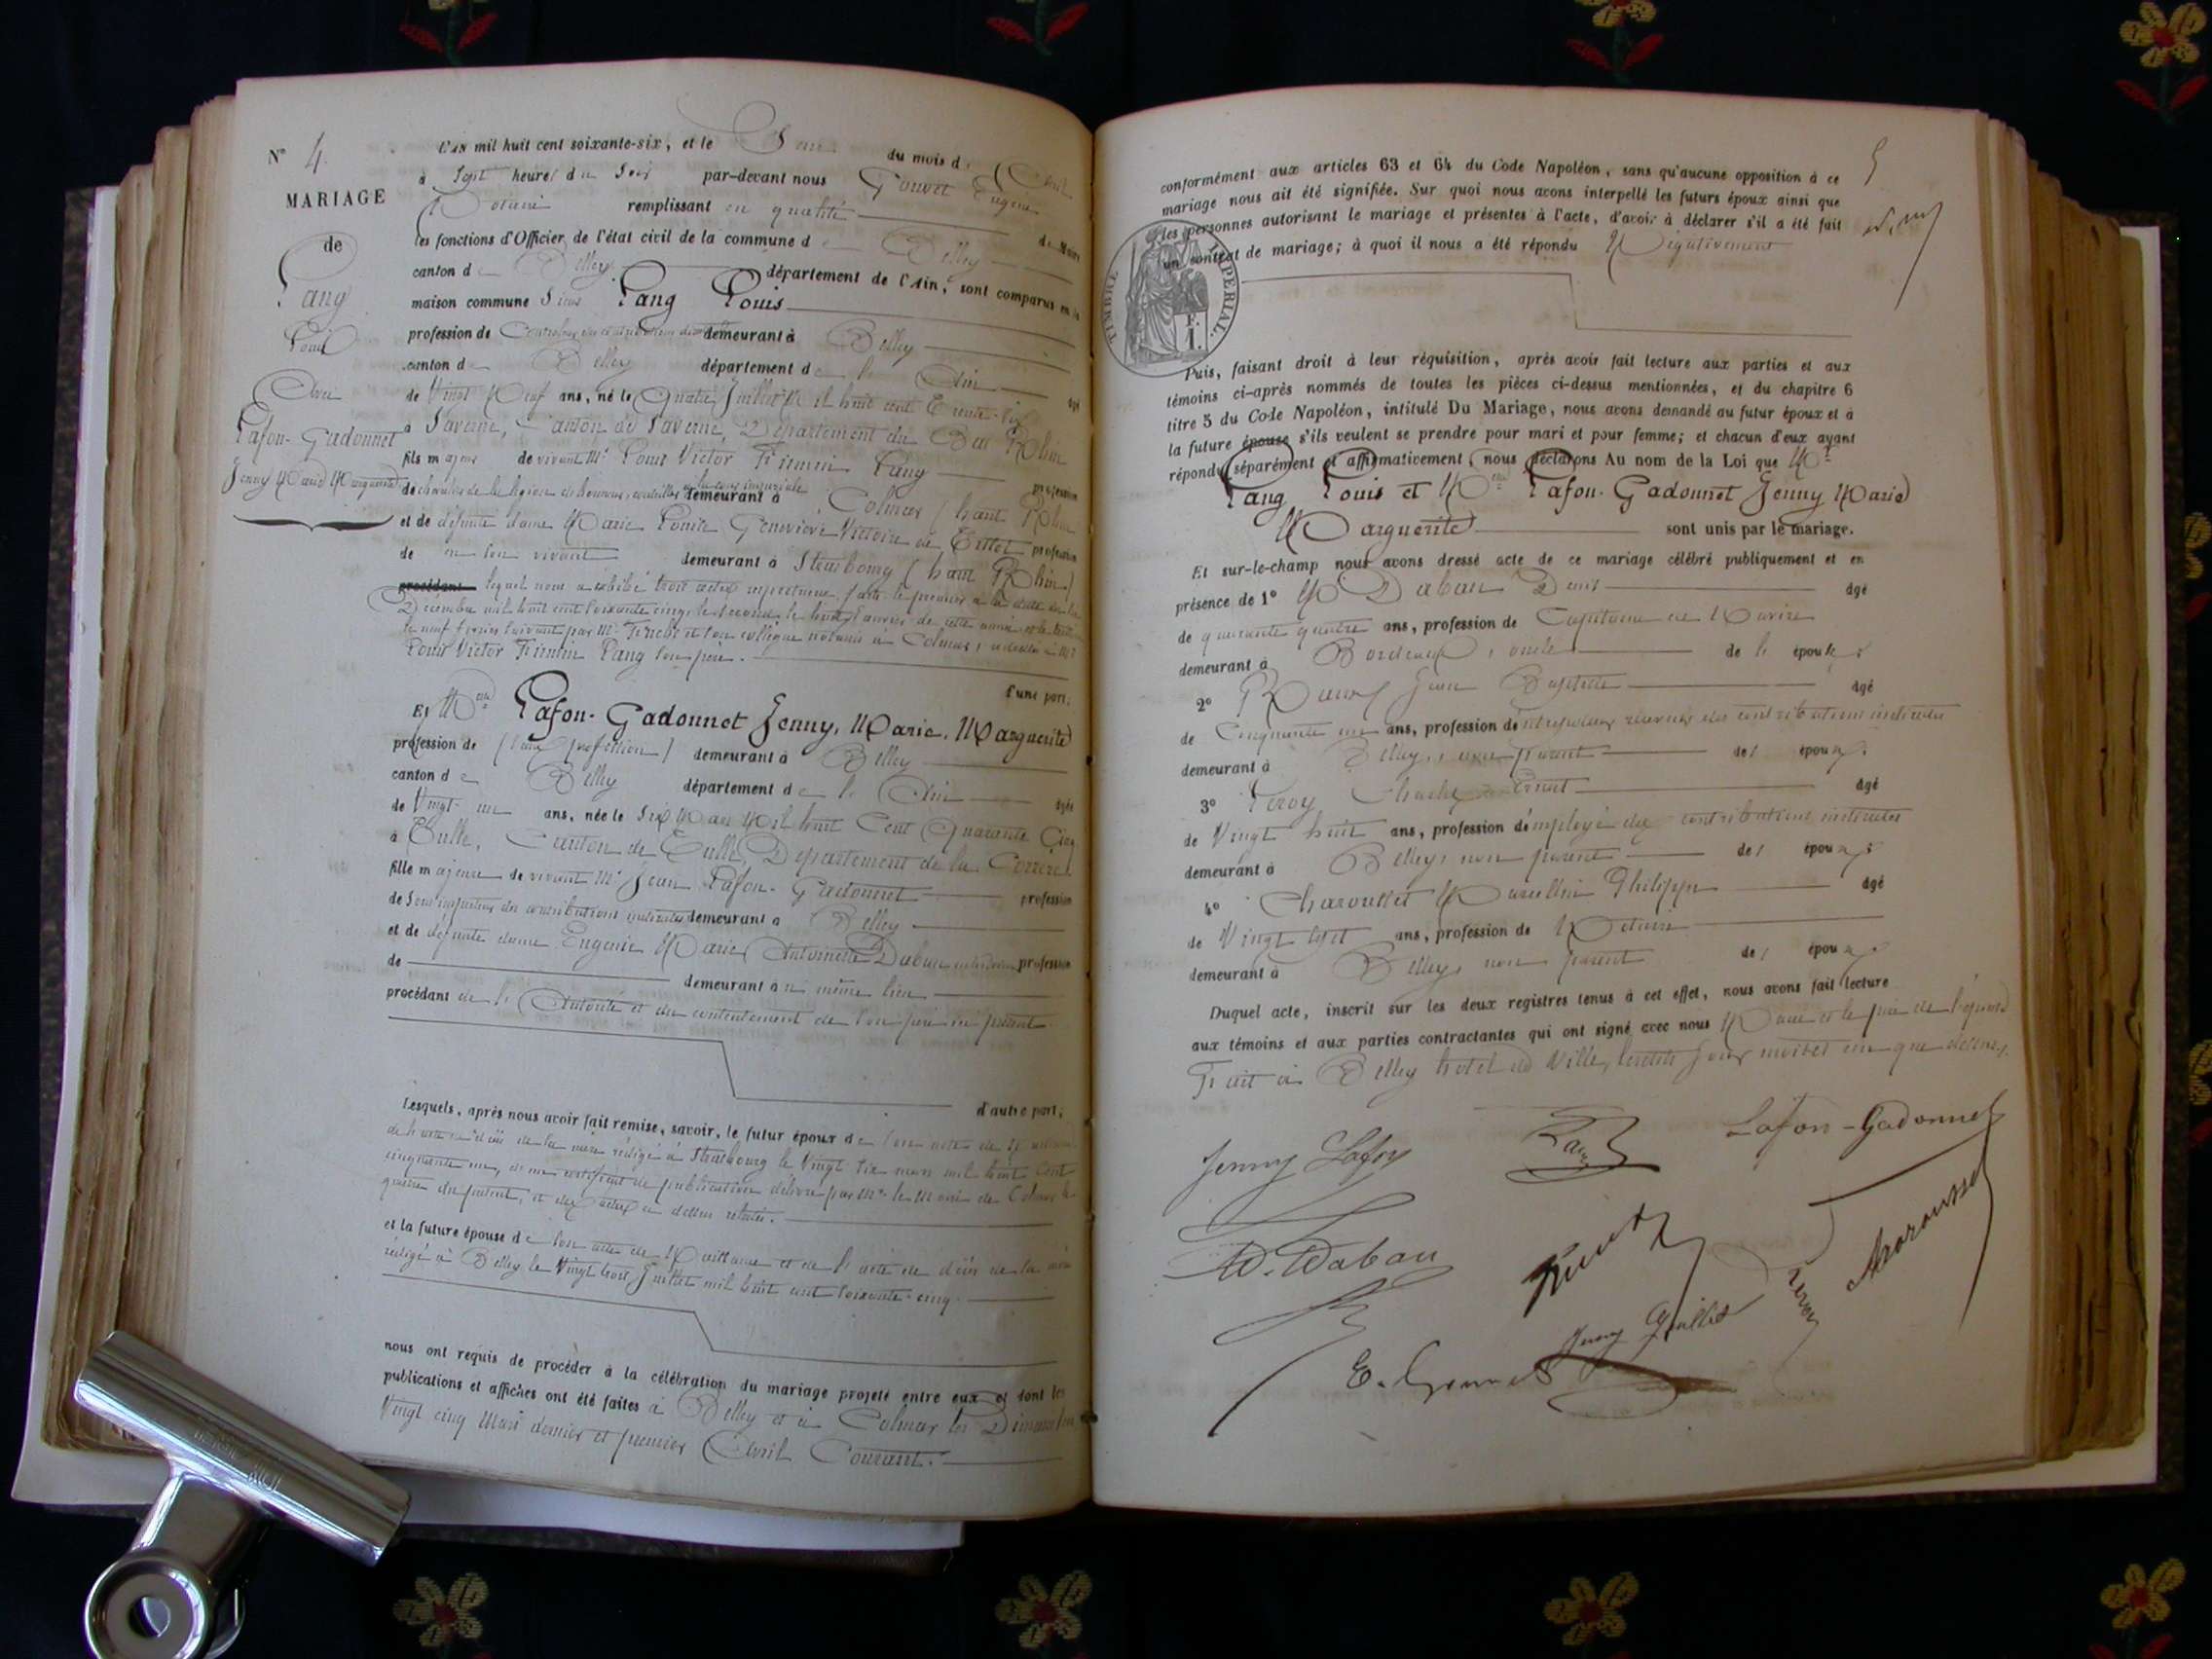 N° 4
MARIAGE
de
Lang
Louis
Avec
Lafon-Gadonnet
Jenny Marie Marguerite
L'AN mil huit cent soixante-six, et le du mois d' Avril
à Sept heures du Soir par-devant nous Gouvet Eugène
Notaire remplissant en qualité de Maire
les fonctions d'Officier de l'état civil de la commune de Belley
canton de Belley département de l'Ain, sont comparus en la
maison commune Sieur Lang Louis
profession de Controleur des contributions demeurant à Belley
canton de Belley département de l' Ain âgé
de Vingt Neuf ans, né le Quatre Juillet Mil huit cent Trente-Six
à Saverne, Canton de Saverne, Département du Bas Rhin
fils majeur de vivant Mr Louis Victor Firmin Lang profession
de chevalier de la légion d'honneur, conseiller à la cour impériale demeurant à Colmar (haut Rhin
et de défunte dame Marie Louise Geneviève Victoire de profession
de en son vivant demeurant à Strasbourg (haut Rhin)
procédant lequel nous a exhibé trois actes respectueux, faits le premier à la date du
Décembre mil huit cent soixante cinq, le second le trente Janvier de cette année et le troisième
le neuf février suivant par Mr et son collègue notaires à Colmar, à Mr
Louis Victor Firmin Lang son père.
d'une part.
Et Melle Lafon-Gadonnet Jenny, Marie, Marguerite
profession de (sans profession) demeurant à Belley
canton de Belley département de l' Ain âgée
de Vingt-un ans, née le Six Mars Mil huit Cent Quarante Cinq
à Tulle, Canton de Tulle, Département de la Corrèze
fille majeure de vivant Mr Jean Lafon-Gadonnet profession
de Sous inspecteur des contributions indirectes demeurant à Belley
et de défunte dame Eugénie Marie Antoinette Dabau profession
de demeurant à au même lieu
procédant de l'Autorité et du consentement de son père ici présent
d'autre part;
Lesquels, après nous avoir fait remise, savoir, le futur époux de son acte de
de l'acte de décès de la mère rédigé à Strasbourg le Vingt Six mars mil huit Cent
cinquante un, d'un certificat de publication délivré par Mr le Maire de Colmar le
quatre du présent, et des actes ci dessus relatés.
et la future épouse de son acte de Naissance et de l'acte de décès de la mère
rédigé à Belley le Vingt trois Juillet mil huit cent soixante-cinq
nous ont requis de procéder à la célébration du mariage projeté entre eux et dont les
publications et affiches ont été faites à Belley et à Colmar les Dimanches
Vingt cinq Mars dernier et premier Avril Courant.
5
conformément aux articles 63 et 64 du Code Napoléon, sans qu'aucune opposition à ce
mariage nous ait été signifiée. Sur quoi nous avons interpellé les futurs époux ainsi que
les personnes autorisant le mariage et présentes à l'acte, d'avoir à déclarer s'il a été fait
un contrat de mariage; à quoi il nous a été répondu Négativement
TIMBRE IMPÉRIAL.
F.
1.
Puis, faisant droit à leur réquisition, après avoir fait lecture aux parties et aux
témoins ci-après nommés de toutes les pièces ci-dessus mentionnées, et du chapitre 6
titre 5 du Code Napoléon, intitulé Du Mariage, nous avons demandé au futur époux et à
la future épouse s'ils veulent se prendre pour mari et pour femme; et chacun d'eux ayant
répondu séparément et affirmativement, nous déclarons Au nom de la Loi que Mr
Lang Louis et Melle Lafon-Gadonnet Jenny Marie
Marguerite sont unis par le mariage.
Et sur-le-champ nous avons dressé acte de ce mariage célébré publiquement et en
présence de 1° M Dabau Denis âgé
de quarante quatre ans, profession de Capitaine de Navire
demeurant à Bordeaux, oncle de l' épouse;
2° Jean Baptiste âgé
de Cinquante un ans, profession d'entreposeur receveur des contributions indirectes
demeurant à Belley, non parent des époux;
3° Leroy Charles Ernest âgé
de Vingt huit ans, profession d'employé des contributions indirectes
demeurant à Belley, non parent des époux;
4° Charousset Marcellin Philippe âgé
de Vingt sept ans, profession de Notaire
demeurant à Belley, non parent des époux.
Duquel acte, inscrit sur les deux registres tenus à cet effet, nous avons fait lecture
aux témoins et aux parties contractantes qui ont signé avec nous Maire et le père de l'épouse
Fait à Belley hotel de Ville, lesdits jour mois et an que dessus.
Jenny Lafon
Lang
Lafon-Gadonnet
D. Dabau
Leroy
Charousset
E. Gouvet
Jenny